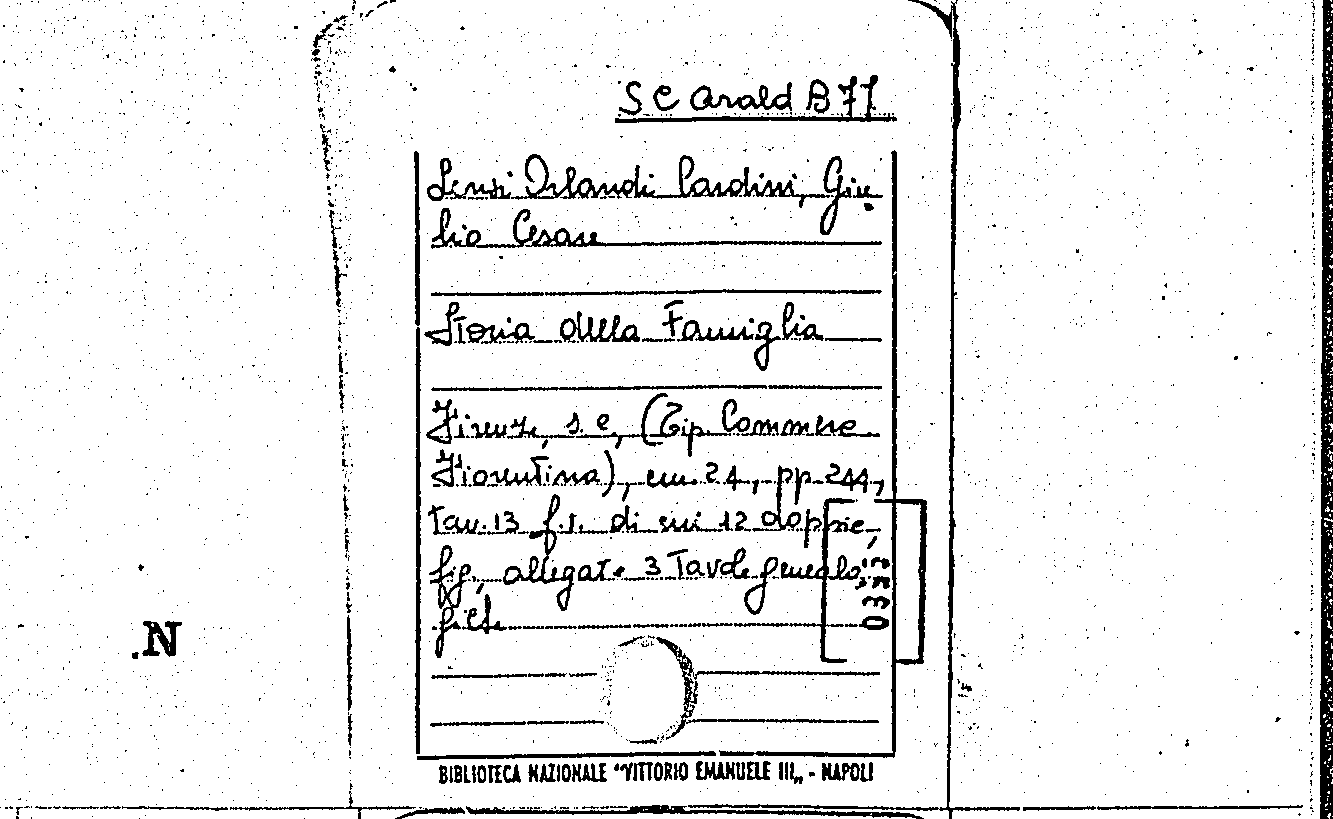 S C Arald B 77
Sensi Orlandi Cardini, Giu
lio Cesare
Storia della Famiglia
Firenze, s. e, (Tip. Commerc
Fiorentina), cm. 24, pp. 244,
tav. 13 f.t. di cui 12 doppie,
fig, allegate 3 Tavole genealo
gich.
.N
BIBLIOTECA NAZIONALE "VITTORIO EMANUELE III„ - NAPOLI